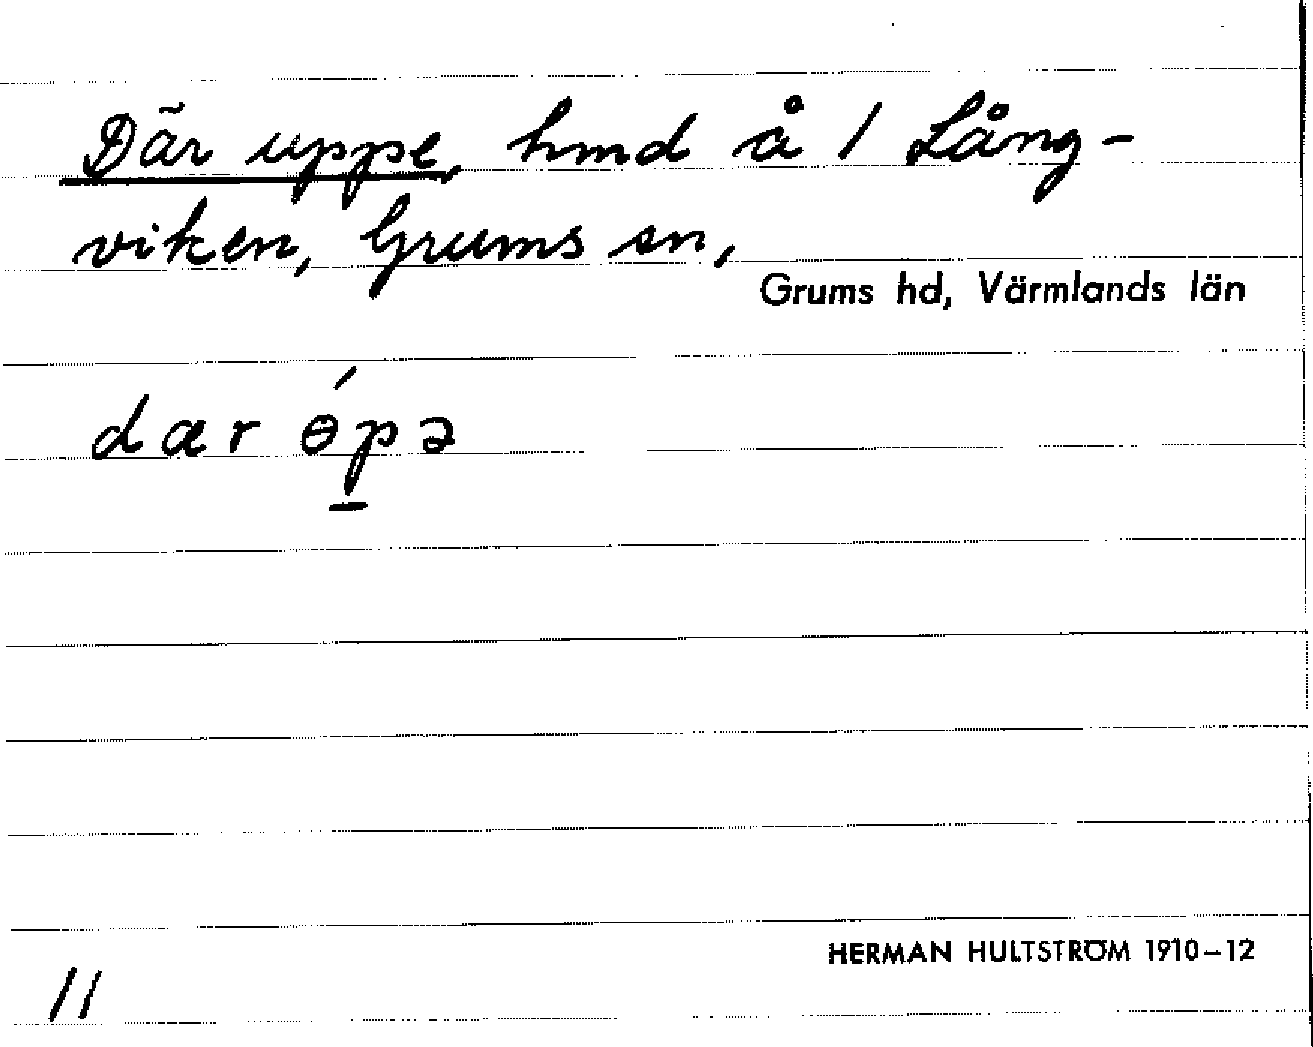 Där uppe, hmd å / Lång-
viken, Grums sn,
Grums hd, Värmlands län
dær ɵ́pə
HERMAN HULTSTRÖM 1910–12
11